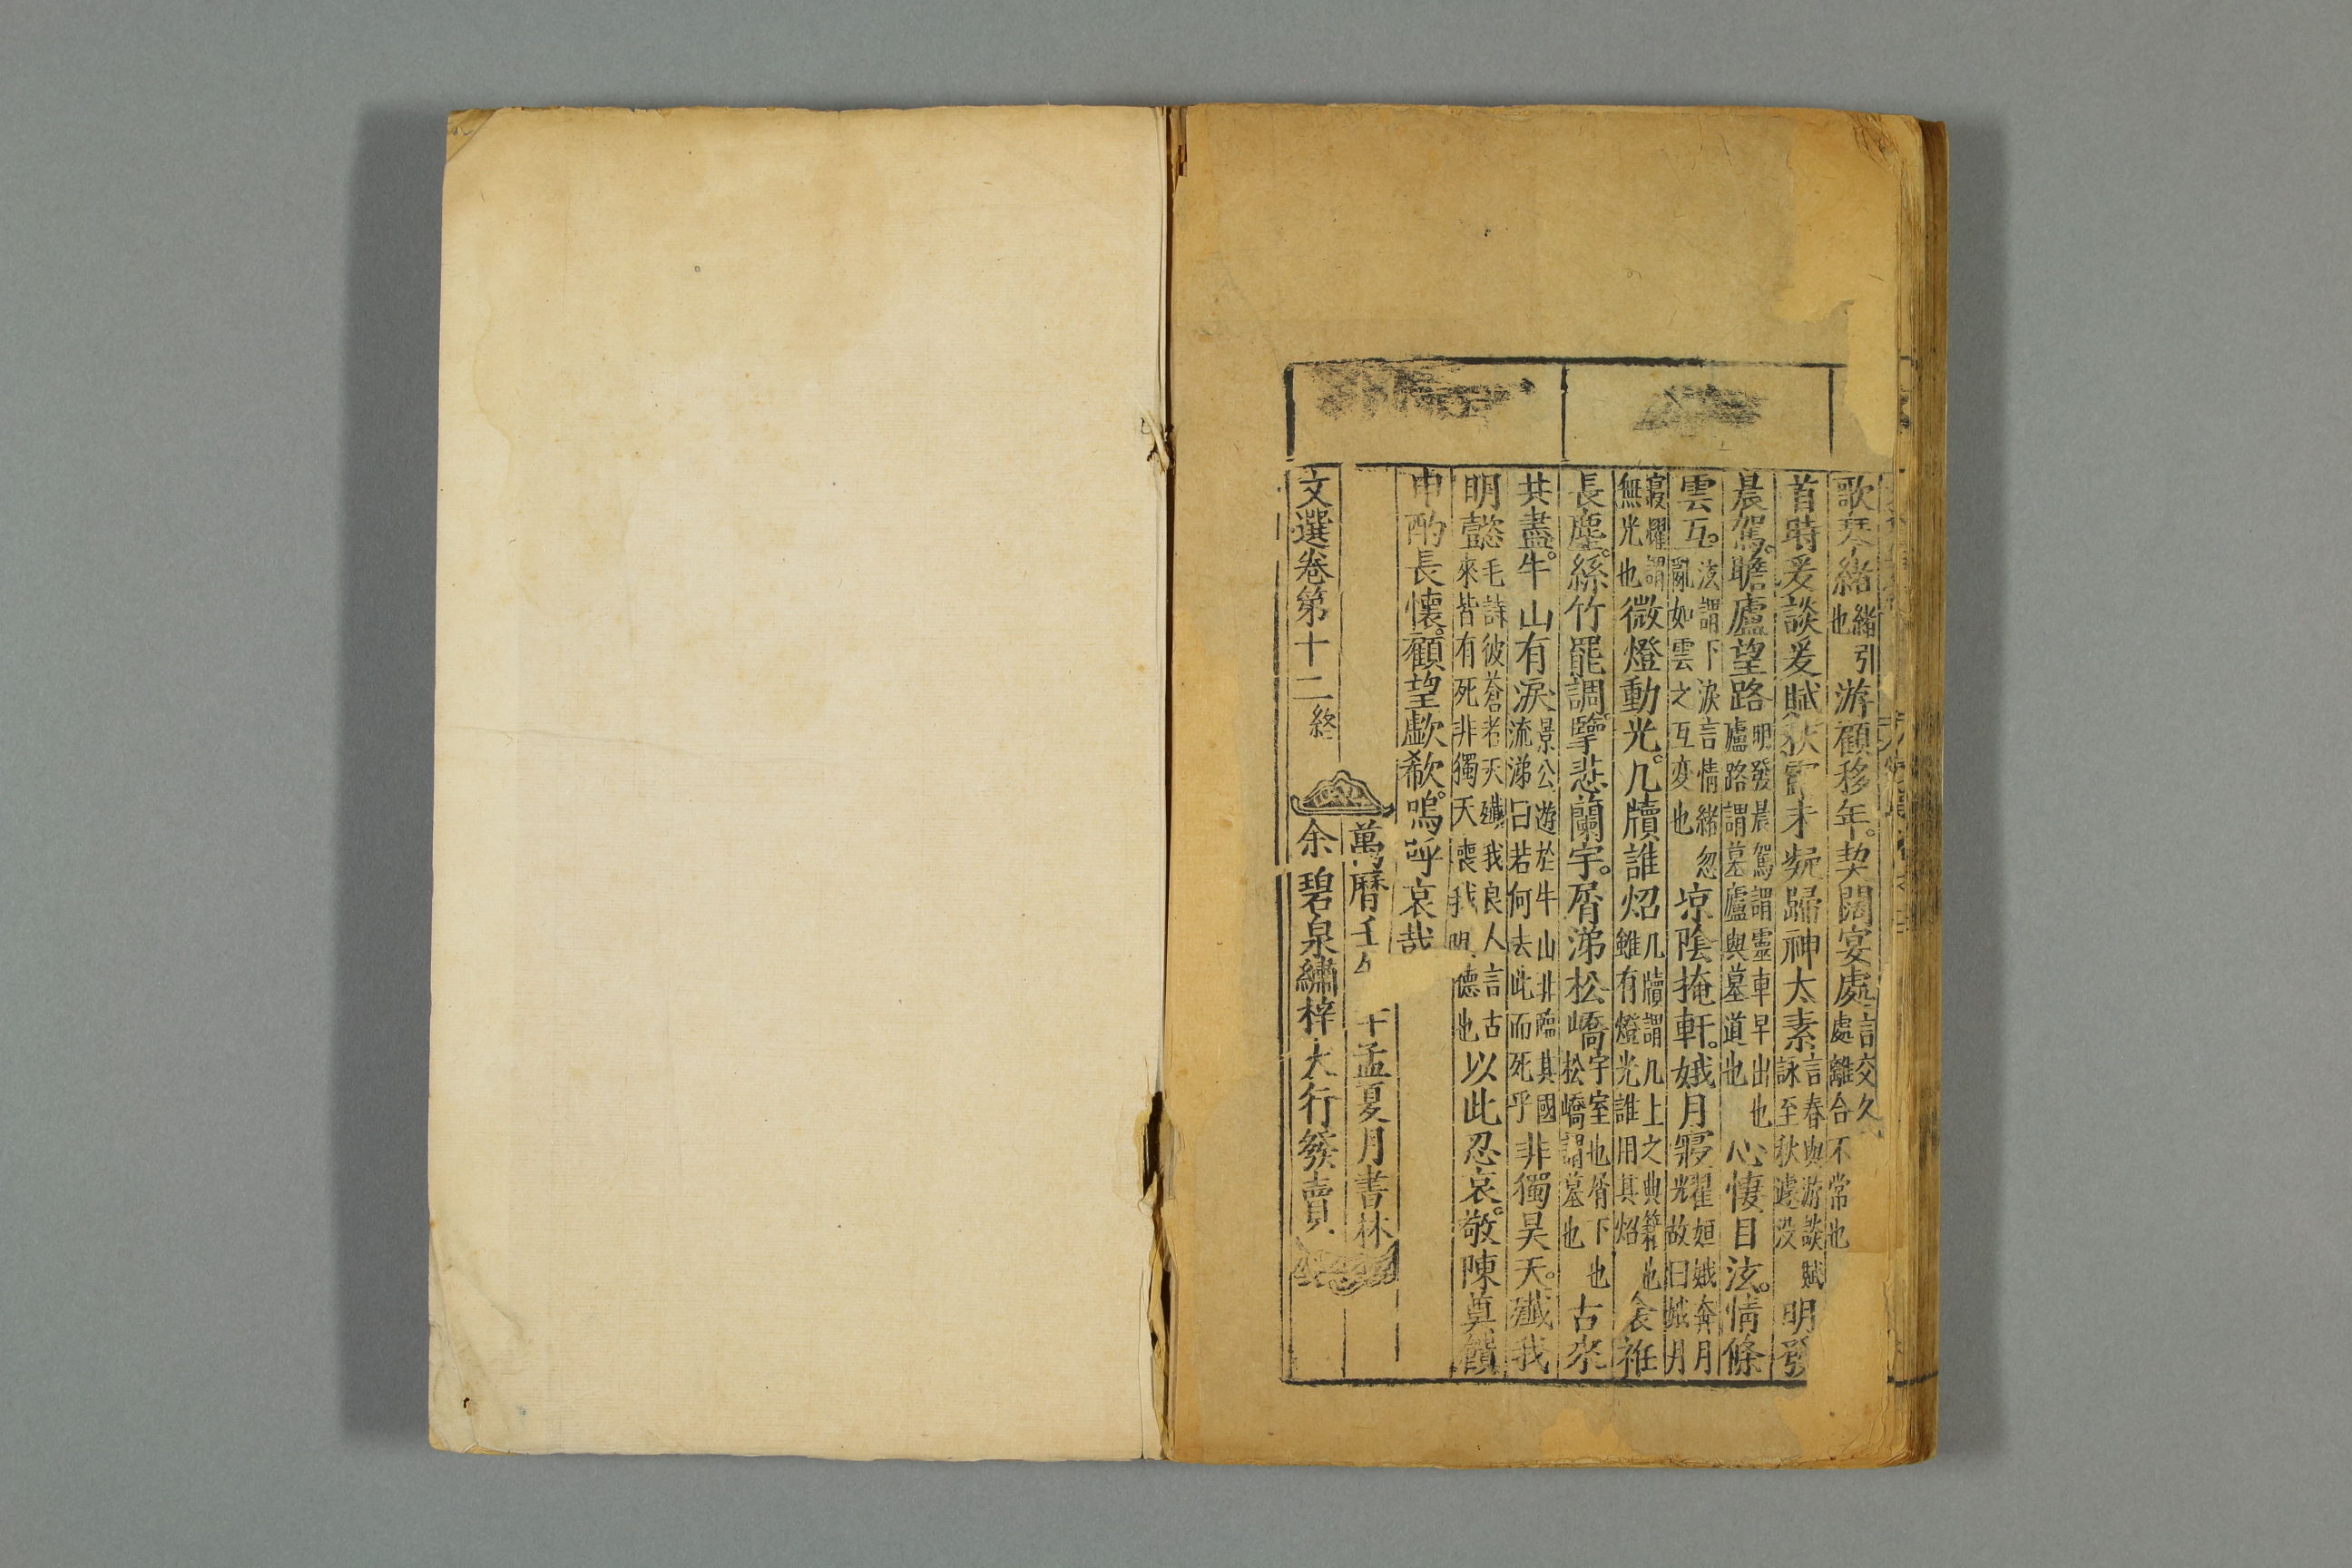 歌琴緒緒引也游顧移年。契闊宴處言交久處離合不常也
首時爰談爰賦秋露未凝歸神太素言春與游談賦詠至秋遽没明發
晨駕。瞻廬望路明發晨駕謂靈車早出也廬路謂墓廬與墓道也心悽目泫。情條
雲互。泫謂下淚言情緒忽亂如雲之互変也凉陰掩軒。娥月寢耀姮娥奔月光故曰娥月
寢耀謂無光也微燈動光。几牘誰炤几牘謂几上之典籍也雖有燈光誰用其炤衾袵
長塵。絲竹罷調。擥悲蘭宇。屑涕松嶠宇室也屑下也松嶠謂墓也古來
共盡。牛山有淚景公遊於牛山非臨其國流涕曰若何去此而死乎非獨昊天。殲我
明懿毛詩彼蒼者天殲我良人言古來皆有死非獨天喪我明德也以此忍哀。敬陳奠饋
申酌長懷。顧望歔欷。嗚呼哀哉
萬曆壬 孟夏月書林
文選卷第十二終
余碧泉繡梓大行發賣